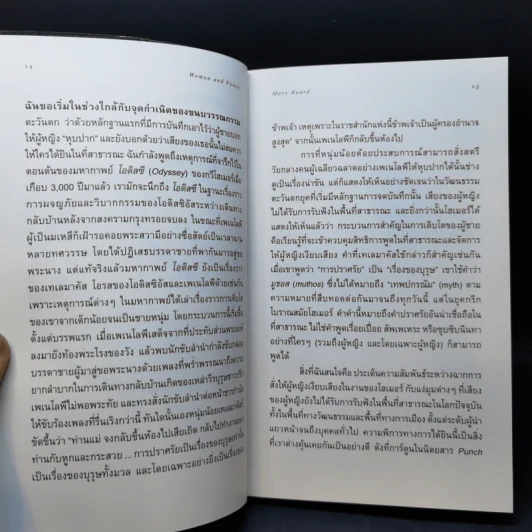 14
Women and Power
ฉันขอเริ่มในช่วงใกล้กับจุดกำเนิดของขนบวรรณกรรม
ตะวันตก ว่าด้วยหลักฐานแรกที่มีการบันทึกเอาไว้ว่าผู้ชายบอก
ให้ผู้หญิง "หุบปาก" และยังบอกด้วยว่าเสียงของเธอนั้นไม่สมควร
ให้ใครได้ยินในที่สาธารณะ ฉันกำลังพูดถึงเหตุการณ์ที่จารึกไว้ใน
ตอนต้นของมหากาพย์ โอดิสซี (Odyssey) ของกวีโฮเมอร์เมื่อ
เกือบ 3,000 ปีมาแล้ว เรามักจะนึกถึง โอดิสซี ในฐานะเรื่องราว
การผจญภัยและวิบากกรรมของโอดิสซิอัสระหว่างเดินทาง
กลับบ้านหลังจากสงครามกรุงทรอยจบลง ในขณะที่เพเนโลพี
ผู้เป็นมเหสีก็เฝ้ารอคอยพระสวามีอย่างซื่อสัตย์เป็นเวลานาน
หลายทศวรรษ โดยได้ปฏิเสธบรรดาชายที่พากันมารุมจีบ
พระนาง แต่แท้จริงแล้วมหากาพย์ โอดิสซี ยังเป็นเรื่องราว
ของเทเลมาคัส โอรสของโอดิสซิอัสและเพเนโลพีด้วยเช่นกัน
เพราะเหตุการณ์ต่างๆ ในมหากาพย์ได้เล่าเรื่องราวการเติบโต
ของเขาจากเด็กน้อยจนเป็นชายหนุ่ม โดยกระบวนการนี้เริ่มขึ้น
ตั้งแต่บรรพแรก เมื่อเพเนโลพีเสด็จจากที่ประทับส่วนพระองค์
ลงมายังท้องพระโรงของวัง แล้วพบนักขับลำนำกำลังขับกล่อม
บรรดาชายผู้มาสู่ขอพระนางด้วยเพลงที่พร่ำพรรณนาถึงความ
ยากลำบากในการเดินทางกลับบ้านเกิดของเหล่าวีรบุรุษชาวกรีก
เพเนโลพีไม่พอพระทัย และทรงสั่งนักขับลำนำต่อหน้าธารกำนัล
ให้ขับร้องเพลงที่รื่นเริงกว่านี้ ทันใดนั้นเองหนุ่มน้อยเทเลมาคัสก็
ขัดขึ้นว่า "ท่านแม่ จงกลับขึ้นห้องไปเสียเถิด กลับไปทำงานของ
ท่านกับหูกและกระสวย ... การปราศรัยเป็นเรื่องของบุรุษเท่านั้น
เป็นเรื่องของบุรุษทั้งมวล และโดยเฉพาะอย่างยิ่งเป็นเรื่องของ
Mary Beard
15
ข้าพเจ้า เหตุเพราะในราชสำนักแห่งนี้ข้าพเจ้าเป็นผู้ครองอำนาจ
สูงสุด" จากนั้นเพเนโลพีก็กลับขึ้นห้องไป
การที่หนุ่มน้อยด้อยประสบการณ์สามารถสั่งสตรี
วัยกลางคนผู้เฉลียวฉลาดอย่างเพเนโลพีให้หุบปากได้นั้นช่าง
ดูเป็นเรื่องน่าขัน แต่ก็แสดงให้เห็นอย่างชัดเจนว่าในวัฒนธรรม
ตะวันตกยุคที่เริ่มมีหลักฐานการจดบันทึกนั้น เสียงของผู้หญิง
ไม่ได้รับการรับฟังในพื้นที่สาธารณะ และยิ่งกว่านั้นโฮเมอร์ได้
แสดงให้เห็นแล้วว่า กระบวนการสำคัญในการเติบโตของผู้ชาย
คือเรียนรู้ที่จะเข้าควบคุมสิทธิการพูดในที่สาธารณะและจัดการ
ให้ผู้หญิงเงียบเสียง คำที่เทเลมาคัสใช้กล่าวก็สำคัญเช่นกัน
เมื่อเขาพูดว่า "การปราศรัย" เป็น "เรื่องของบุรุษ" เขาใช้คำว่า
มูธอส (muthos) ซึ่งไม่ได้หมายถึง "เทพปกรณัม" (myth) ตาม
ความหมายที่สืบทอดต่อกันมาจนถึงทุกวันนี้ แต่ในยุคกรีก
โบราณสมัยโฮเมอร์ คำคำนี้หมายถึงคำปราศรัยอันน่าเชื่อถือใน
ที่สาธารณะ ไม่ใช่คำพูดเรื่อยเปื่อย สัพเพเหระ หรือซุบซิบนินทา
อย่างที่ใครๆ (รวมถึงผู้หญิง และโดยเฉพาะผู้หญิง) ก็สามารถ
พูดได้
สิ่งที่ฉันสนใจคือ ประเด็นความสัมพันธ์ระหว่างฉากการ
สั่งให้ผู้หญิงเงียบเสียงในงานของโฮเมอร์ กับแง่มุมต่างๆ ที่เสียง
ของผู้หญิงยังไม่ได้รับการรับฟังในพื้นที่สาธารณะในโลกปัจจุบัน
ทั้งในพื้นที่ทางวัฒนธรรมและพื้นที่ทางการเมือง ตั้งแต่ระดับผู้นำ
แถวหน้าจนถึงบุคคลทั่วไป ความพิการทางการได้ยินนี้เป็นสิ่ง
ที่เราต่างคุ้นเคยกันเป็นอย่างดี ดังที่การ์ตูนในนิตยสาร Punch